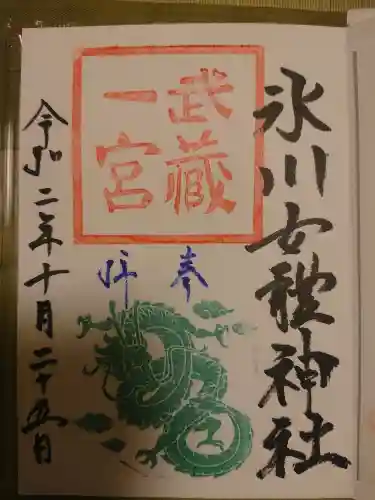 氷川女體神社
武蔵
一宮
奉
拝
令和二年十月二十五日